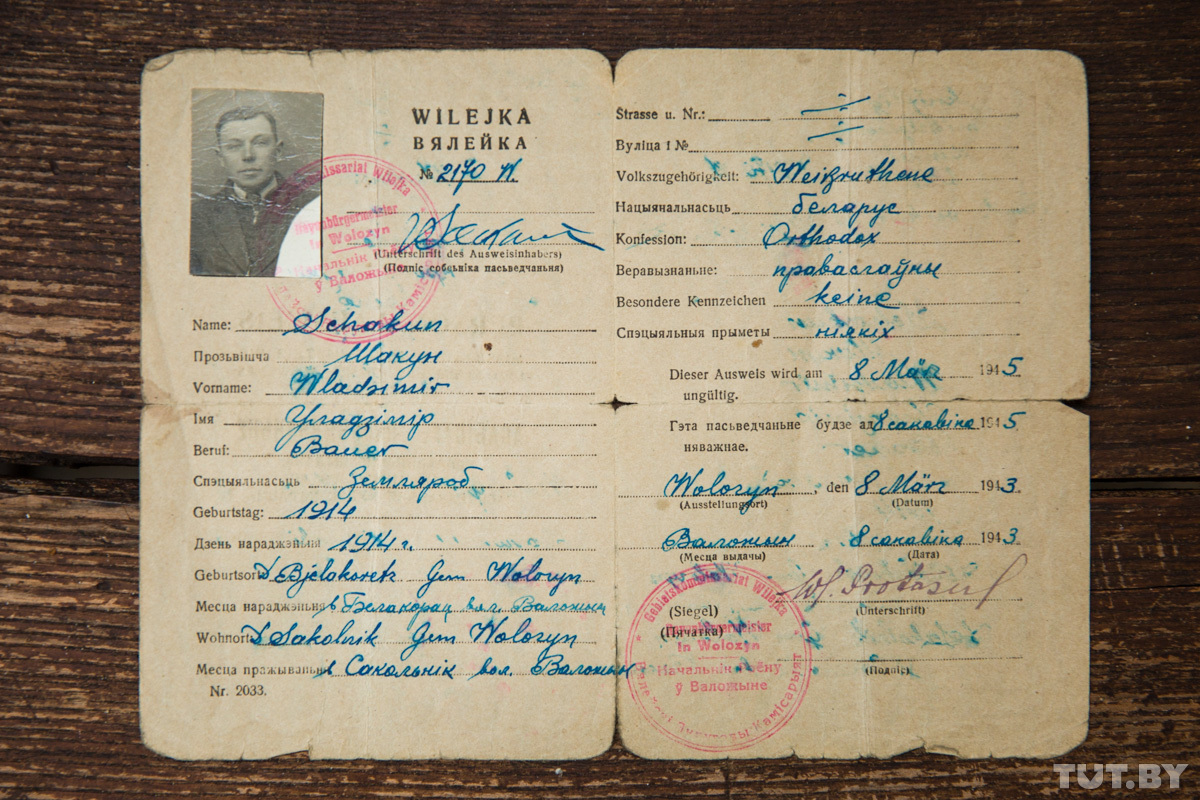 WILEJKA
ВЯЛЕЙКА
№ 2170 W.
(Unterschrift des Ausweisinhabers)
(Подпіс собсьніка пасьведчаньня)
Name: Schakun
Прозьвішча Шакун
Vorname: Wladzimir
Імя Уладзімір
Beruf: Bauer
Спэцыяльнасьць Земляроб
Geburtstag: 1914
Дзень нараджэньня 1914 г.
Geburtsort D. Bjelokoretz Gem Wolozyn
Месца нараджэньня в Белакорац вол. Валожын
Wohnort D Sakolnik Gem Wolozyn
Месца пражываньня в Сакольнік вол. Валожын
Nr. 2033.
Strasse u. Nr.:
Вуліца і №
Volkszugehörigkeit: Weißruthene
Нацыянальнасьць беларус
Konfession: Orthodox
Веравызнаньне: праваслаўны
Besondere Kennzeichen keine
Спэцыяльныя прыметы ніякіх
Dieser Ausweis wird am 8 März 1945
ungültig.
Гэта пасьведчаньне будзе ад 8 сакавіка 1945
няважнае.
Wolozyn, den 8 März 1943
(Ausstellungsort) (Datum)
Валожын 8 сакавіка 1943
(Месца выдачы) (Дата)
(Siegel) (Unterschrift)
(Пячатка)
(Подпіс)
Gebietskommissariat Wilejka
Rayonbürgermeister
in Wolozyn
Начальнік Раёну
ў Валожыне
TUT.BY